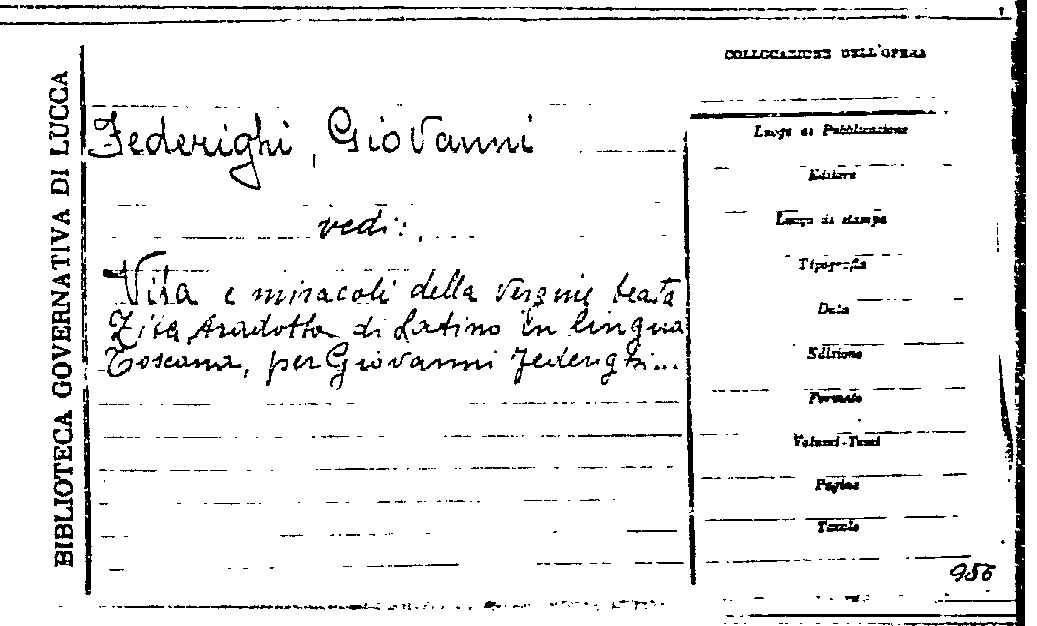 BIBLIOTECA GOVERNATIVA DI LUCCA
COLLOCAZIONE DELL'OPERA
Federighi, Giovanni
vedi:
Vita e miracoli della vergine beata
Zita, tradotta di Latino in lingua
Toscana, per Giovanni Federighi...
Luogo di Pubblicazione
Editore
Luogo di stampa
Tipografia
Data
Edizione
Formato
Volumi-Tomi
Pagine
Tavole
956